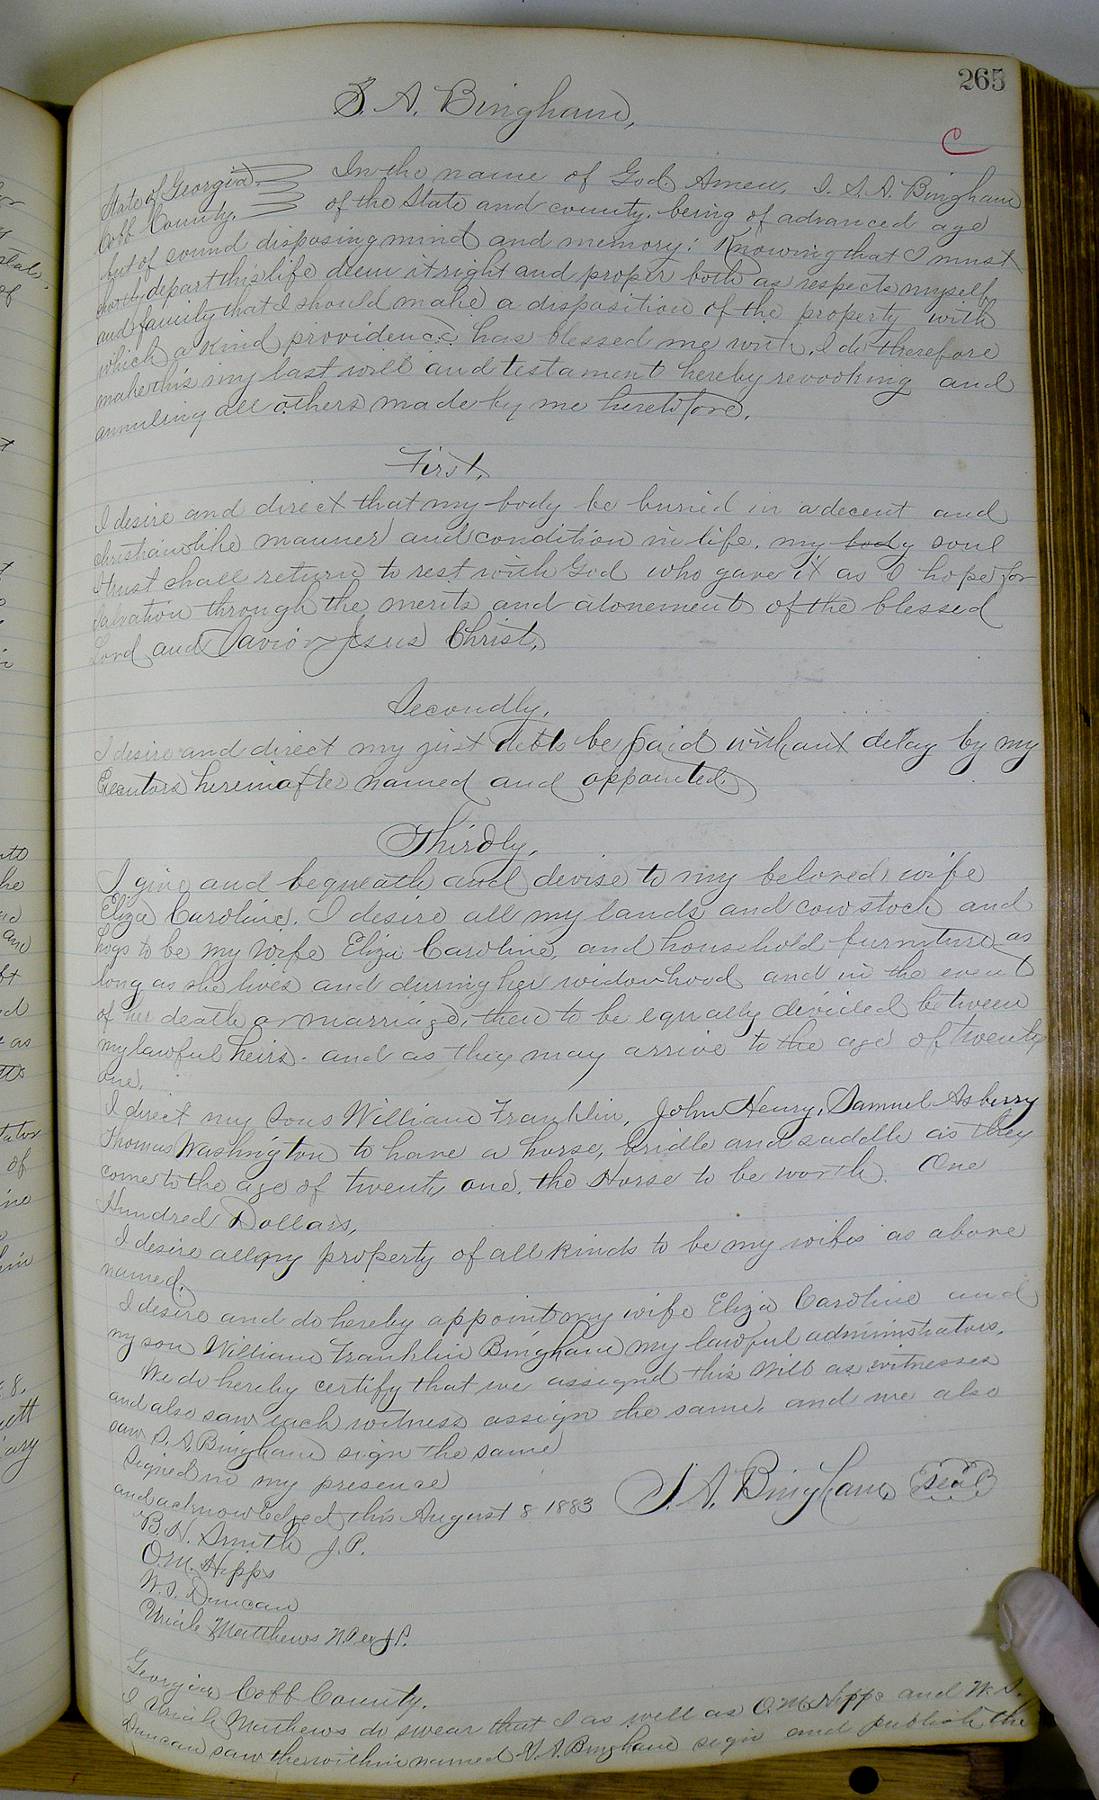 265
C
S. A. Bingham,
State of Georgia In the name of God Amen, I. S. A. Bingham
Cobb County. of the State and county, being of advanced age
but of sound disposing mind and memory; Knowing that I must
shortly depart this life deem it right and proper both as respects myself
and family that I should make a disposition of the property with
which a kind providence has blessed me with. I do therefore
make this my last will and testament hereby revooking and
annuling all others made by me heretofore.
First,
I desire and direct that my body be buried in a decent and
christian like manner and condition in life. my body soul
I trust shall return to rest with God who gave it as I hope for
Salvation through the merits and atonement of the blessed
Lord and Savior Jesus Christ,
Secondly,
I desire and direct my just debts be paid without delay by my
Executors hereinafter named and appointed
Thirdly,
I give and bequeath and devise to my beloved wife
Eliza Caroline. I desire all my lands and cow stock and
hogs to be my Wife Eliza Caroline, and household furniture as
long as she lives and during her widowhood and in the event
of her death or marriage, then to be equally devided between
my lawful heirs. and as they may arrive to the age of twenty
one.
I direct my Sons William Franklin, John Henry, Samuel Asberry
Thomas Washington to have a horse, bridle and saddle as they
come to the age of twenty one. the Horse to be worth One
Hundred Dollars,
I desire all my property of all kinds to be my wifes as above
named.
I desire and do hereby appoint my wife Eliza Caroline and
my son William Franklin Bingham my lawful administrators.
We do hereby certify that we assigned this Will as witnesses
and also saw each witness assign the same. and we also
saw S. A. Bingham sign the same
Signed in my presence
and acknowledged this August 8 1883 S. A. Bingham Seal
B. H. Smith J. P.
O. M. Hipps
W. S. Duncan
Uriah Matthews N. P. ex J. P.
Georgia, Cobb County.
I Uriah Mathews do swear that I as well as O. M. Hipps and W. S.
Duncan saw the within named S. A. Bingham sign and publish the